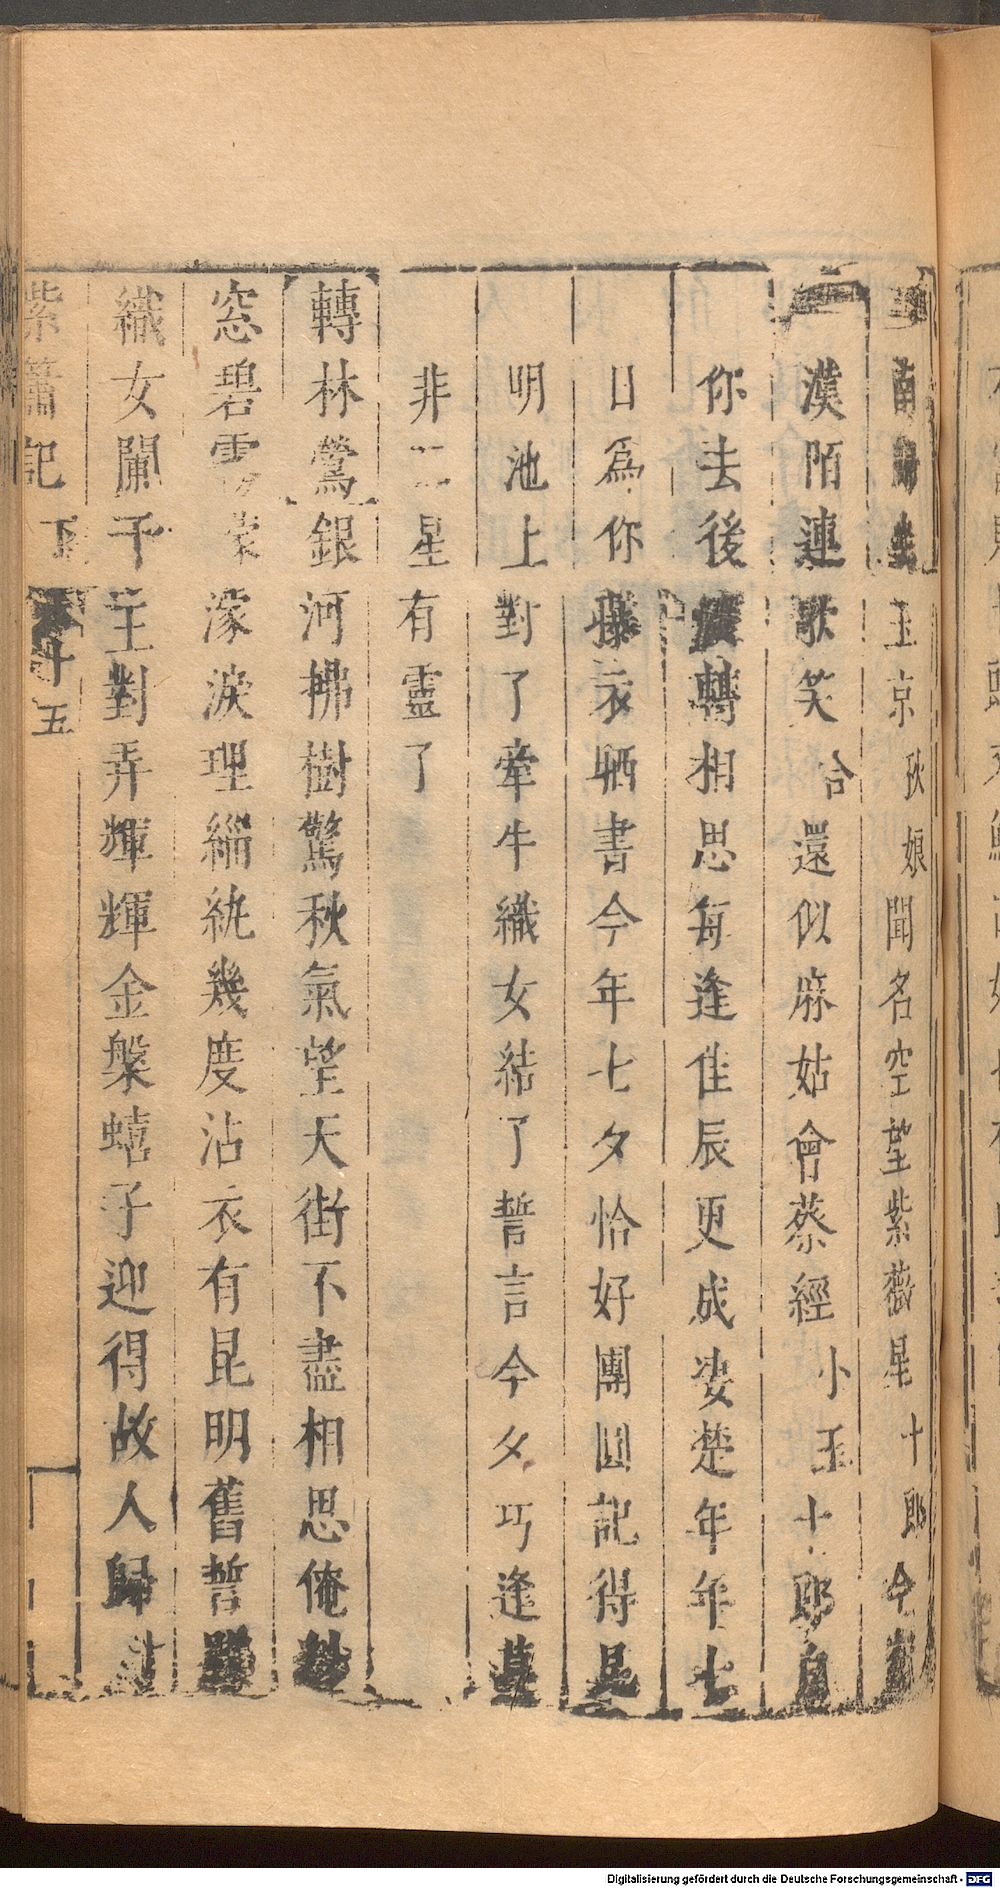 南歸
玉京秋娘聞名空望紫薇星十郎今
漢陌連歌笑合還似麻姑會蔡經小玉十郎自
你去後展轉相思每逢佳辰更成淒楚年年七
日爲你曝衣晒書今年七夕恰好團圓記得昆
明池上對了牽牛織女結了誓言今夕巧逢莫
非二星有靈了
轉林鶯銀河拂樹驚秋氣望天街不盡相思俺紗
窓碧雲濛淚理緇紈幾度沾衣有昆明舊誓
織女闌干主對弄輝輝金槃蟢子迎得故人歸
紫簫記下 五十五
Digitalisierung gefördert durch die Deutsche Forschungsgemeinschaft - DFG